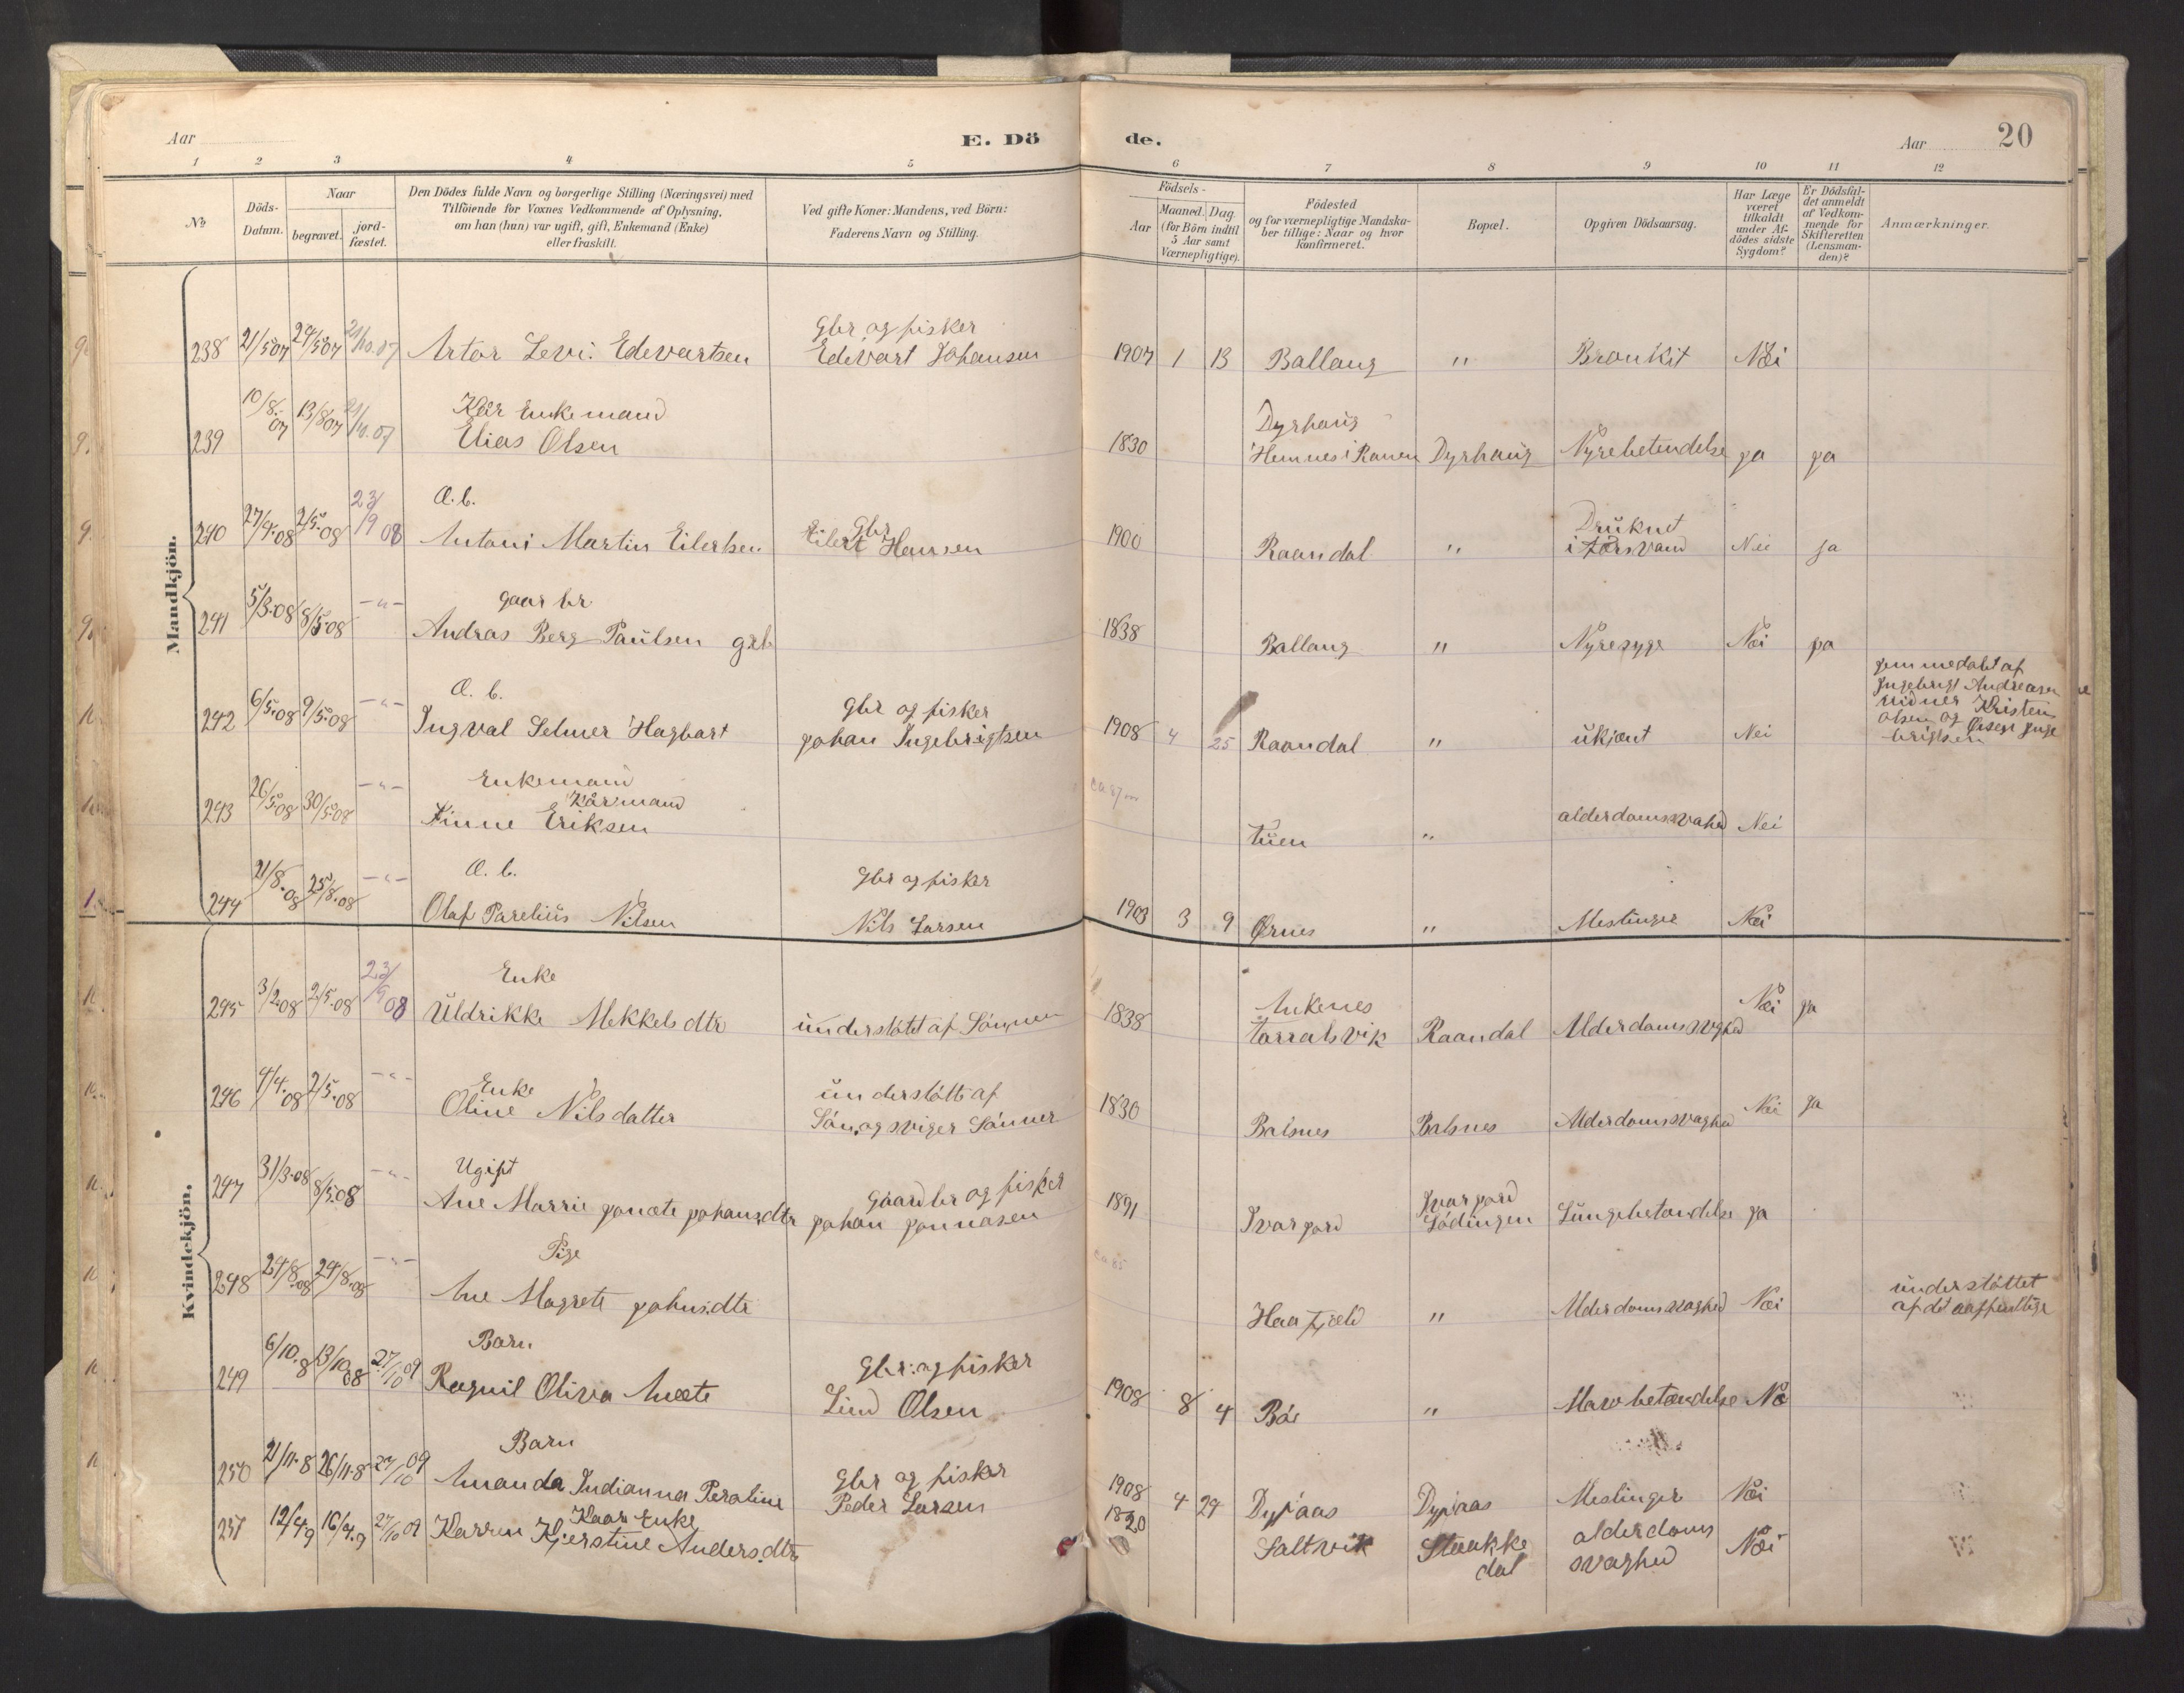 Aar E. Dö de. Aar 20
1 2 3 4 5 6 7 8 9 10 11 12
№
Döds-
Datum.
Naar
begravet.
jord-
fæstet.
Den Dödes fulde Navn og borgerlige Stilling (Næringsvei) med
Tilföiende for Voxnes Vedkommende af Oplysning,
om han (hun) var ugift, gift, Enkemand (Enke)
eller fraskilt.
Ved gifte Koner: Mandens, ved Börn:
Faderens Navn og Stilling.
Födsels-
Aar
Maaned. Dag.
(for Börn indtil
5 Aar samt
Værnepligtige).
Födested
og for værnepligtige Mandska-
ber tillige: Naar og hvor
konfirmeret.
Bopæl.
Opgiven Dödsaarsag.
Har Læge
været
tilkaldt
under Af-
dödes sidste
Sygdom?
Er Dödsfal-
det anmeldt
af Vedkom-
mende for
Skifteretten
(Lensman-
den)?
Anmærkninger.
Mandkjön.
Gbr og fisker
238 21/5 07 24/5 07 21/10.07 Artor Levi. Edevartsen Edevart Johansen 1907 1 13 Ballang " Bronkit Nei
Kår Enkemand Dyrhaug
239 10/8.07 13/8 07 21/10.07 Elias Olsen 1830 Hemnes i Ranen Dyrhaug Nyrebetendelse ja ja
Æ.b. Gbr Druknet
240 27/4.08 2/5.08 23/9 08 Antoni Martin Eilertsen Eilert Hansen 1900 Raandal " i Forsvand Nei ja
gaarbr
241 5/3.08 8/5.08 -"- Andras Berg Paulsen gift 1838 Ballang " Nyresyge Nei ja
Æ.b. Gbr og fisker
242 6/5.08 9/5.08 -"- Ingval Selmer Hagbart Johan Ingebrigtsen 1908 4 25 Raandal " ukjent Nei
jemmedøbt af
Ingebrigt Andreasen
vidner Kristen
Olsen og Inge
brigtsen
Enkemand
Kårmand
243 26/5.08 30/5.08 -"- Finne Eriksen ca 27 tuen " alderdomssvahed Nei
Æ.b. Gbr og fisker
244 21/8.08 25/8.08 -"- Olaf Parelius Nilsen Nils Larsen 1903 3 9 Ørnes " Meslinger Nei
Kvindekjön.
Enke Ankenes
245 3/2.08 2/5.08 23/9 08 Uldrikke Mekkelsdtr understøtet af Sønnen 1838 Tarralsvik Raandal Alderdomssvghed Nei ja
Enke understøtt af
246 4/4.08 2/5.08 -"- Oline Nilsdatter Søn og sviger Sønner 1830 Balsnes Balsnes Alderdomssvaghed Nei ja
Ugift Gaardbr og fisker Ivargord
247 31/3.08 8/5.08 -"- Ane Marrie Janæte Johansdtr Johan Jonnasen 1891 Ivargord Lødingen Lungebetændelse ja
Pige
248 24/8.08 29/8.08 -"- Ane Magrete Johnsdtr ca 85 Haafjeld " Alderdomssvaghed Nei
understøttet
af det
Barn Gbr: og fisker
249 6/10.8 13/10 08 27/10 09 Ragnil Oliva Anæte Lind Olsen 1908 8 4 Bøe " Mavebetændelse Ne
Barn Gbr og fisker
250 21/11.8 26/11.8 27/10 09 Amanda Indianna Peroline Peder Larsen 1908 4 29 Dypaas Dypaas Meslinger Nei
Kaar Enke
251 12/4.9 16/4.9 27/10 09 Karren Kjerstine Andersdtr 1820 Saltvik Stuakke alderdoms Nei
dal svaghed